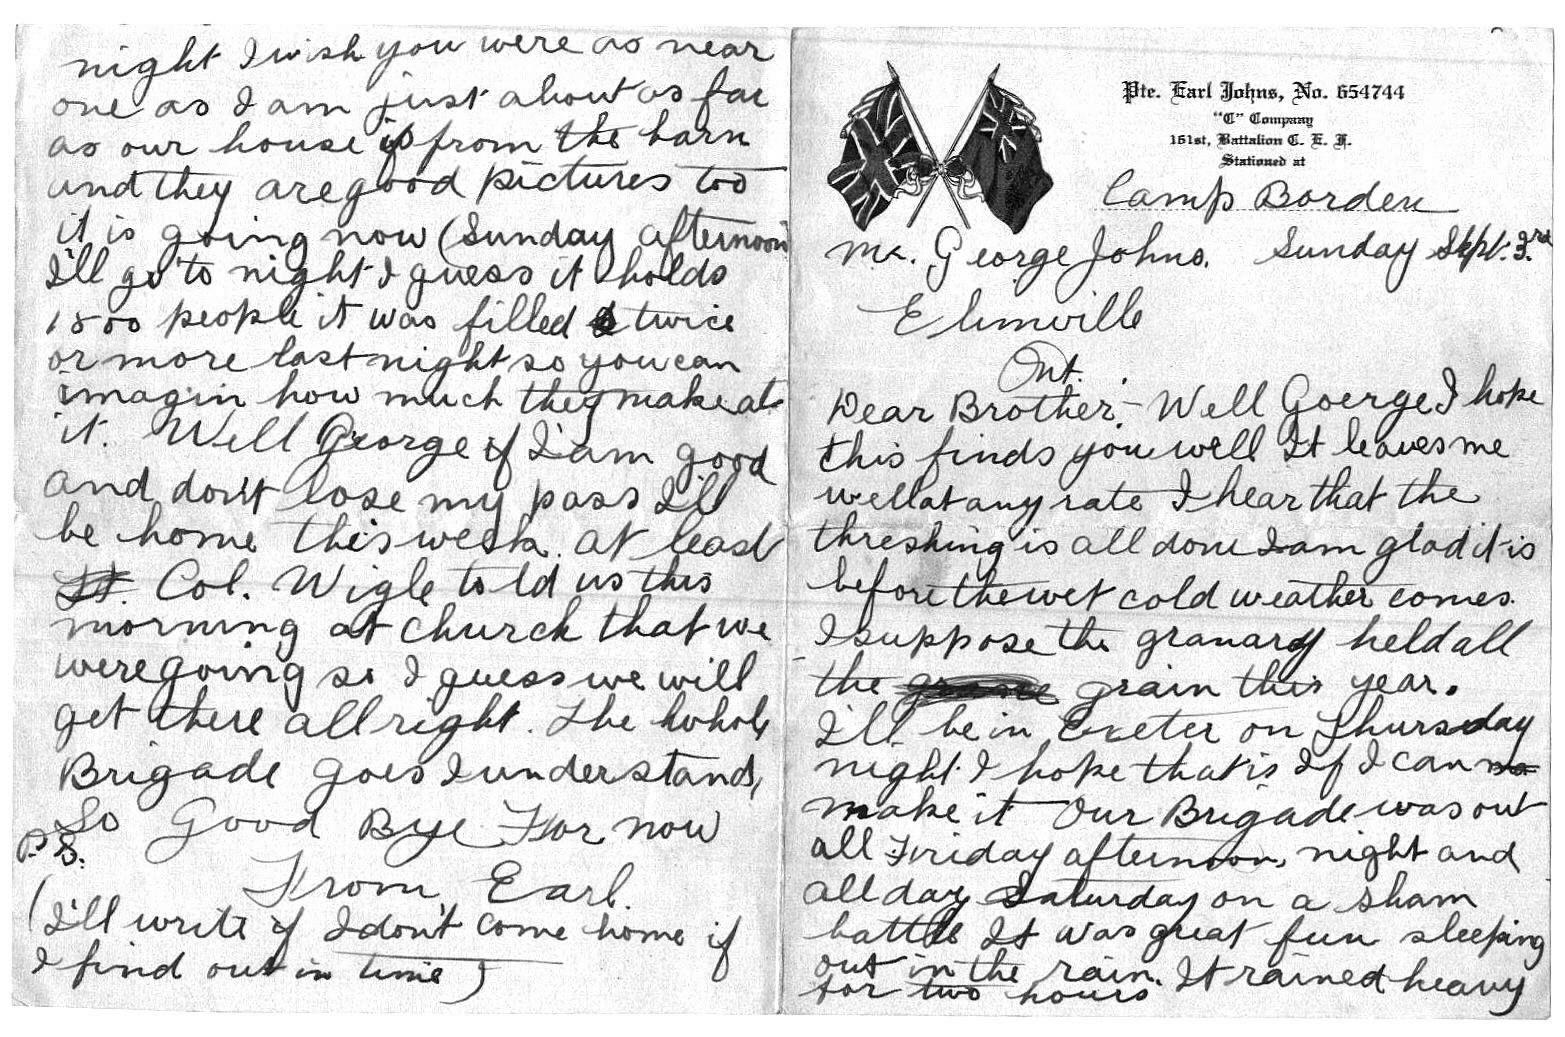 Pte. Earl Johns, No. 654744
"C" Company
161st, Battalion C. E. F.
Stationed at
Camp Borden
Mr. George Johns. Sunday Sept. 3rd
Elimville
Ont.
Dear Brother:- Well Goerge I hope
this finds you well It leaves me
well at any rate I hear that the
threshing is all done I am glad it is
before the wet cold weather comes.
I suppose the granary held all
the grain this year.
I'll be in Exeter on Thursday
night I hope that is If I can
make it Our Brigade was out
all Friday afternoon, night and
all day Saturday on a sham
battle It was great fun sleeping
out in the rain. It rained heavy
for two hours
night I wish you were as near
one as I am just about as far
as our house is from the barn
and they are good pictures too
it is going now (Sunday afternoon
I'll go to night I guess it holds
1800 people it was filled twice
or more last night so you can
imagin how much they make at
it. Well George if I am good
and don't lose my pass I'll
be home this week. at least
Lt. Col. Wigle told us this
morning at church that we
were going so I guess we will
get there all right. The whole
Brigade goes I understand,
So Good Bye For now
P.S.
From, Earl.
(I'll write if I don't come home if
I find out in time)